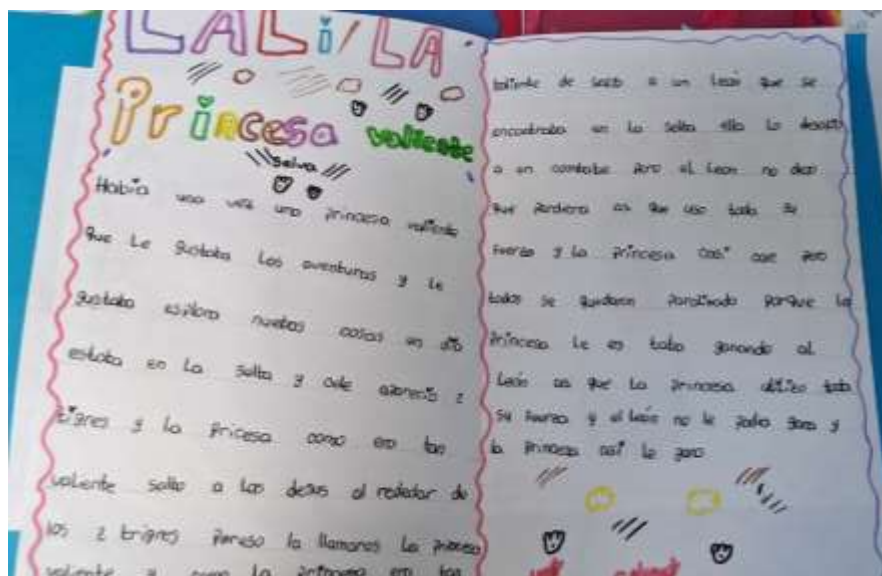 LALi/LA
Princesa valiente
Selva
Había una vez una princesa valiente
que le gustaba las aventuras y le
gustaba esplora nuebas cosas un día
estaba en la selba y ade aparecio 2
tigres y la pricesa como era tan
valiente salto a las al rededor de
los 2 trigres peruso la llamaros la princesa
valiente y como la princesa era tan
baliente de a un león que se
encontraba en la selba ella lo desafio
a un combate pero el leon no dejo
que perdiera as que uso toda su
fuerza y la princesa casi cae pero
todos se quedaron paralisado porque la
princesa le es taba ganando al
león as que la princesa utilizo toda
su fuerza y el león no le podia gana y
la princesa así le gano